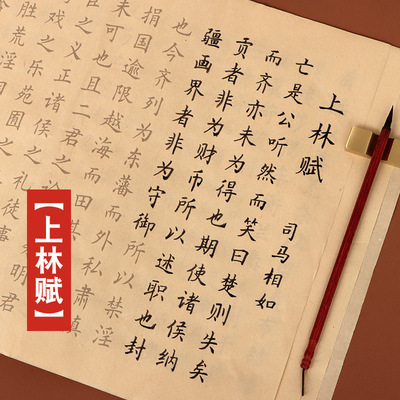 上林赋
司马相如
亡是公听然而笑曰楚则失矣
而齐亦未为得也期使诸侯纳
贡者非为财币所以述职也封
疆画界者非为守御所以禁淫
也今齐列为东藩而外私肃慎
捐国逾限越海而田其
未可也且二君之论
之义正诸侯之礼徒事
戏之乐苑囿之
胜荒淫
明君
【上林赋】